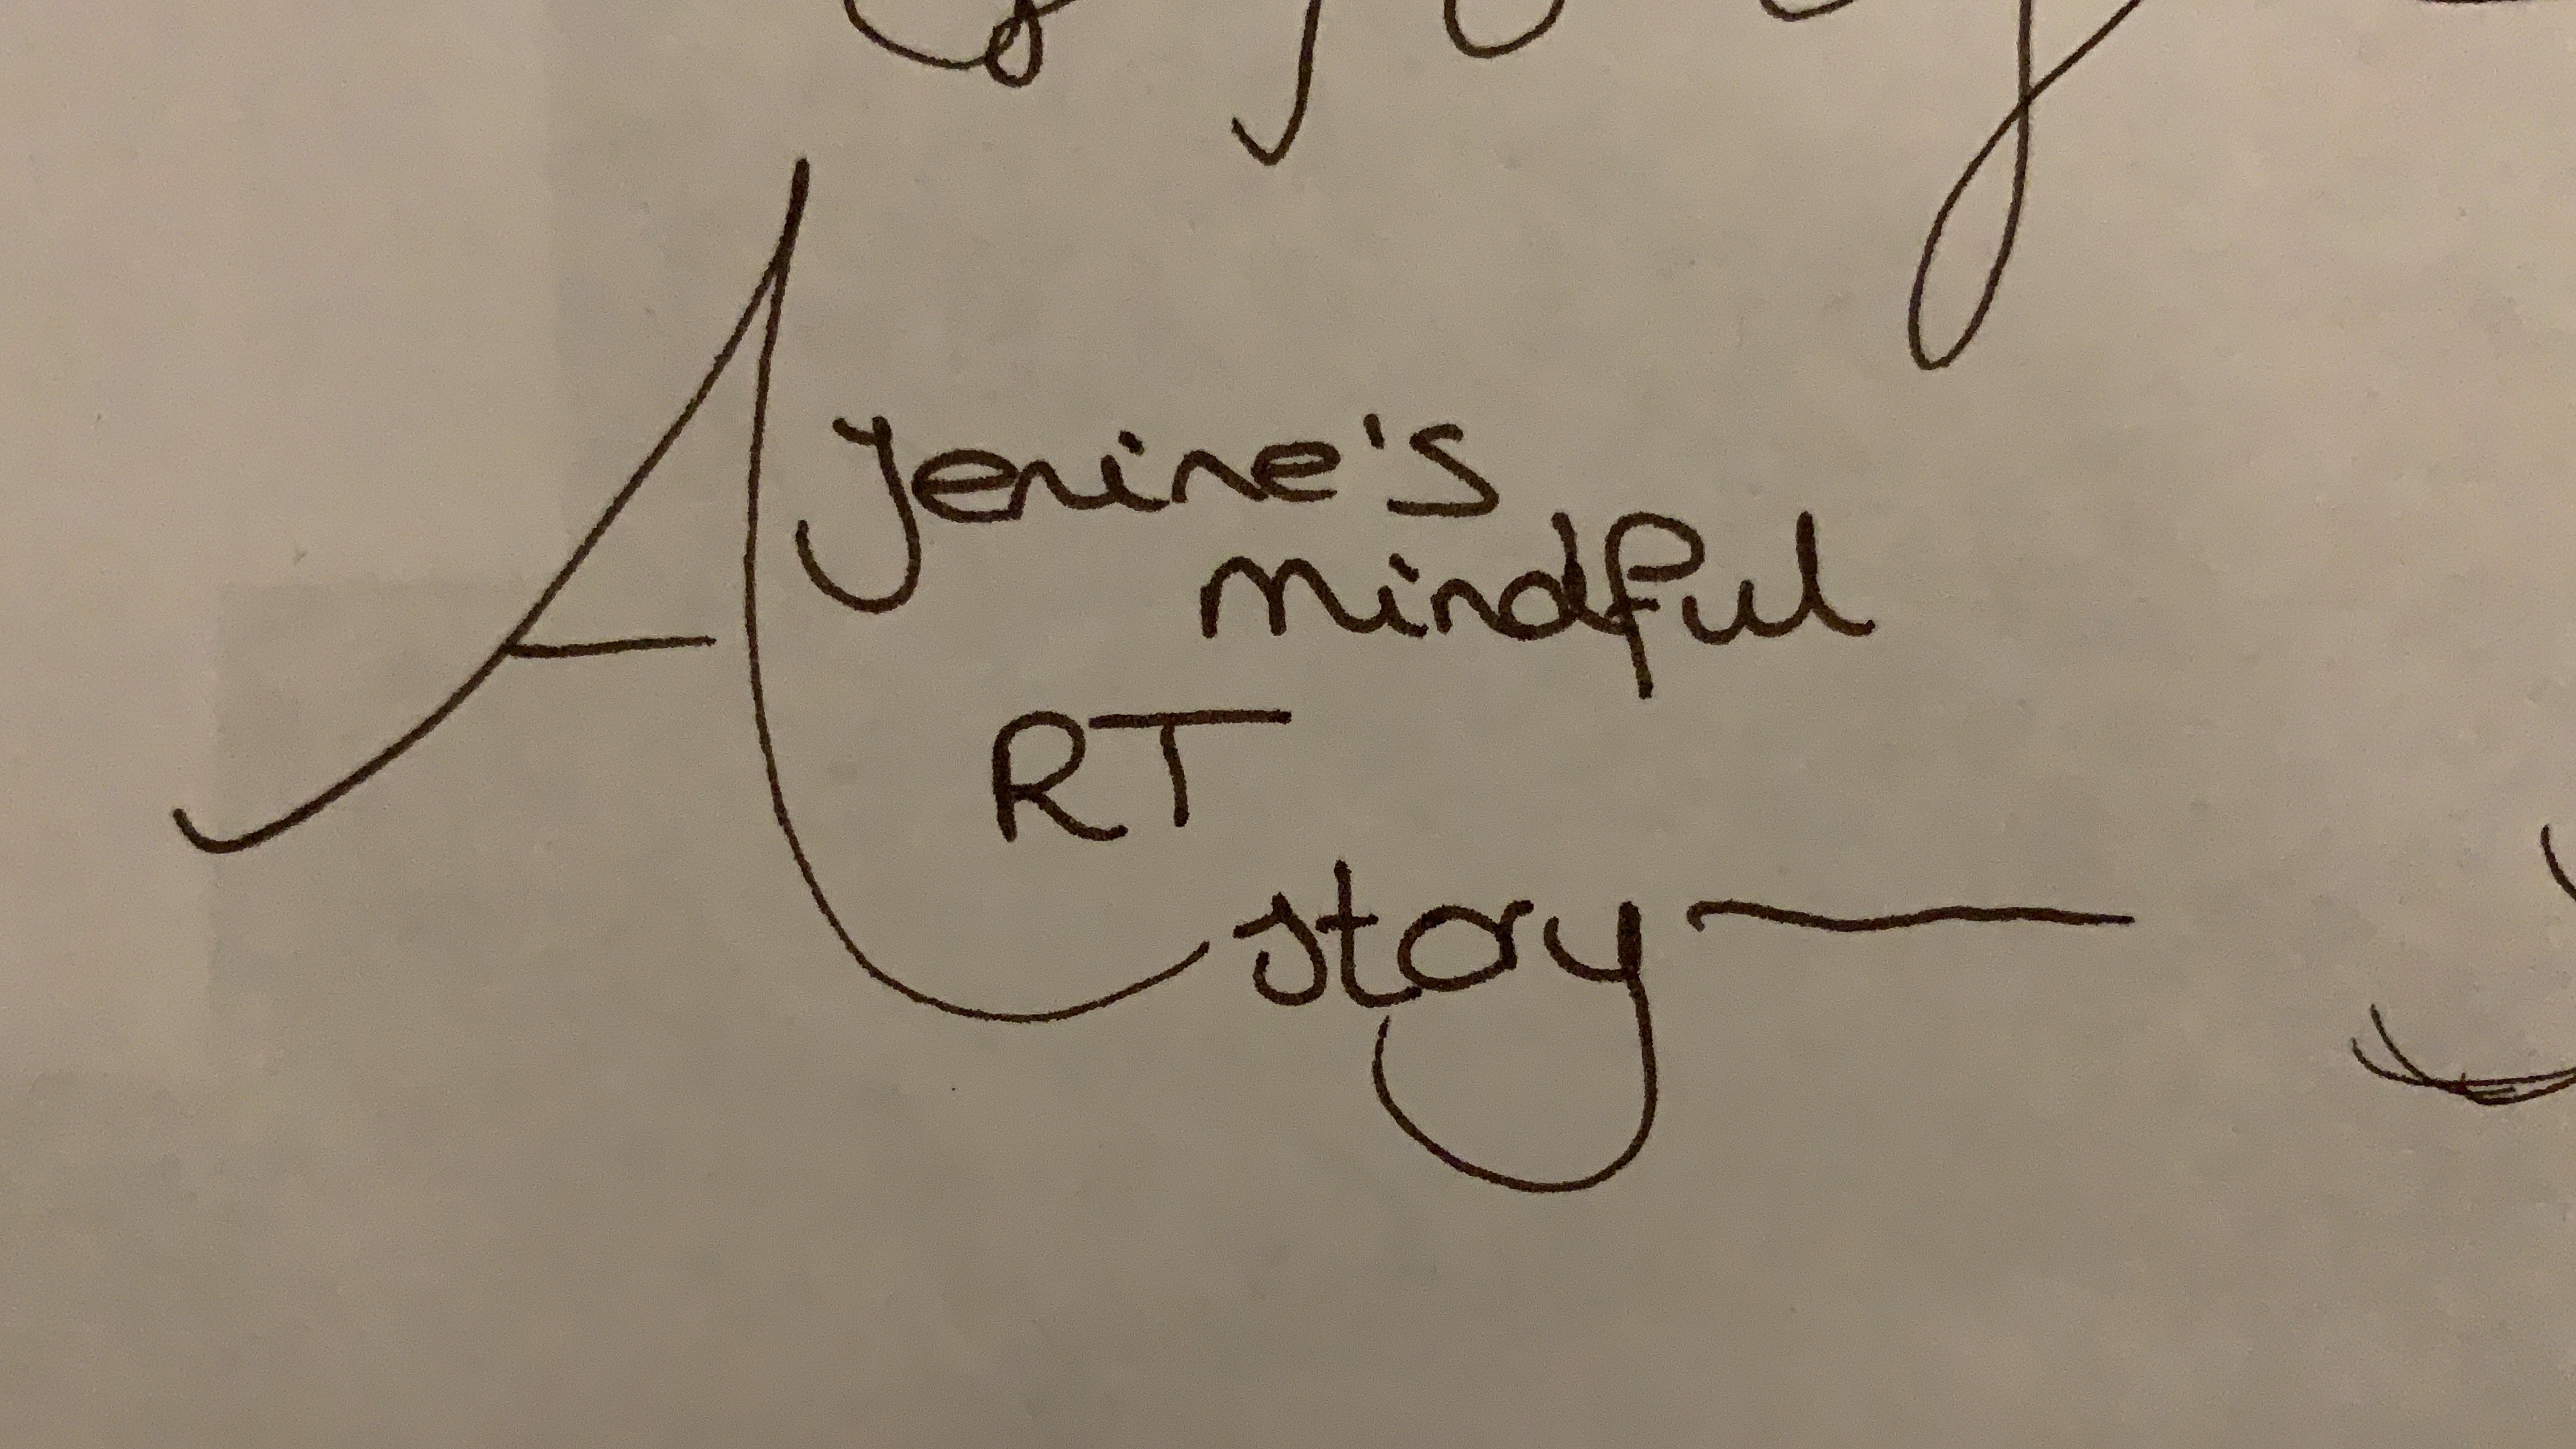 Jenine's
mindful
A RT
story